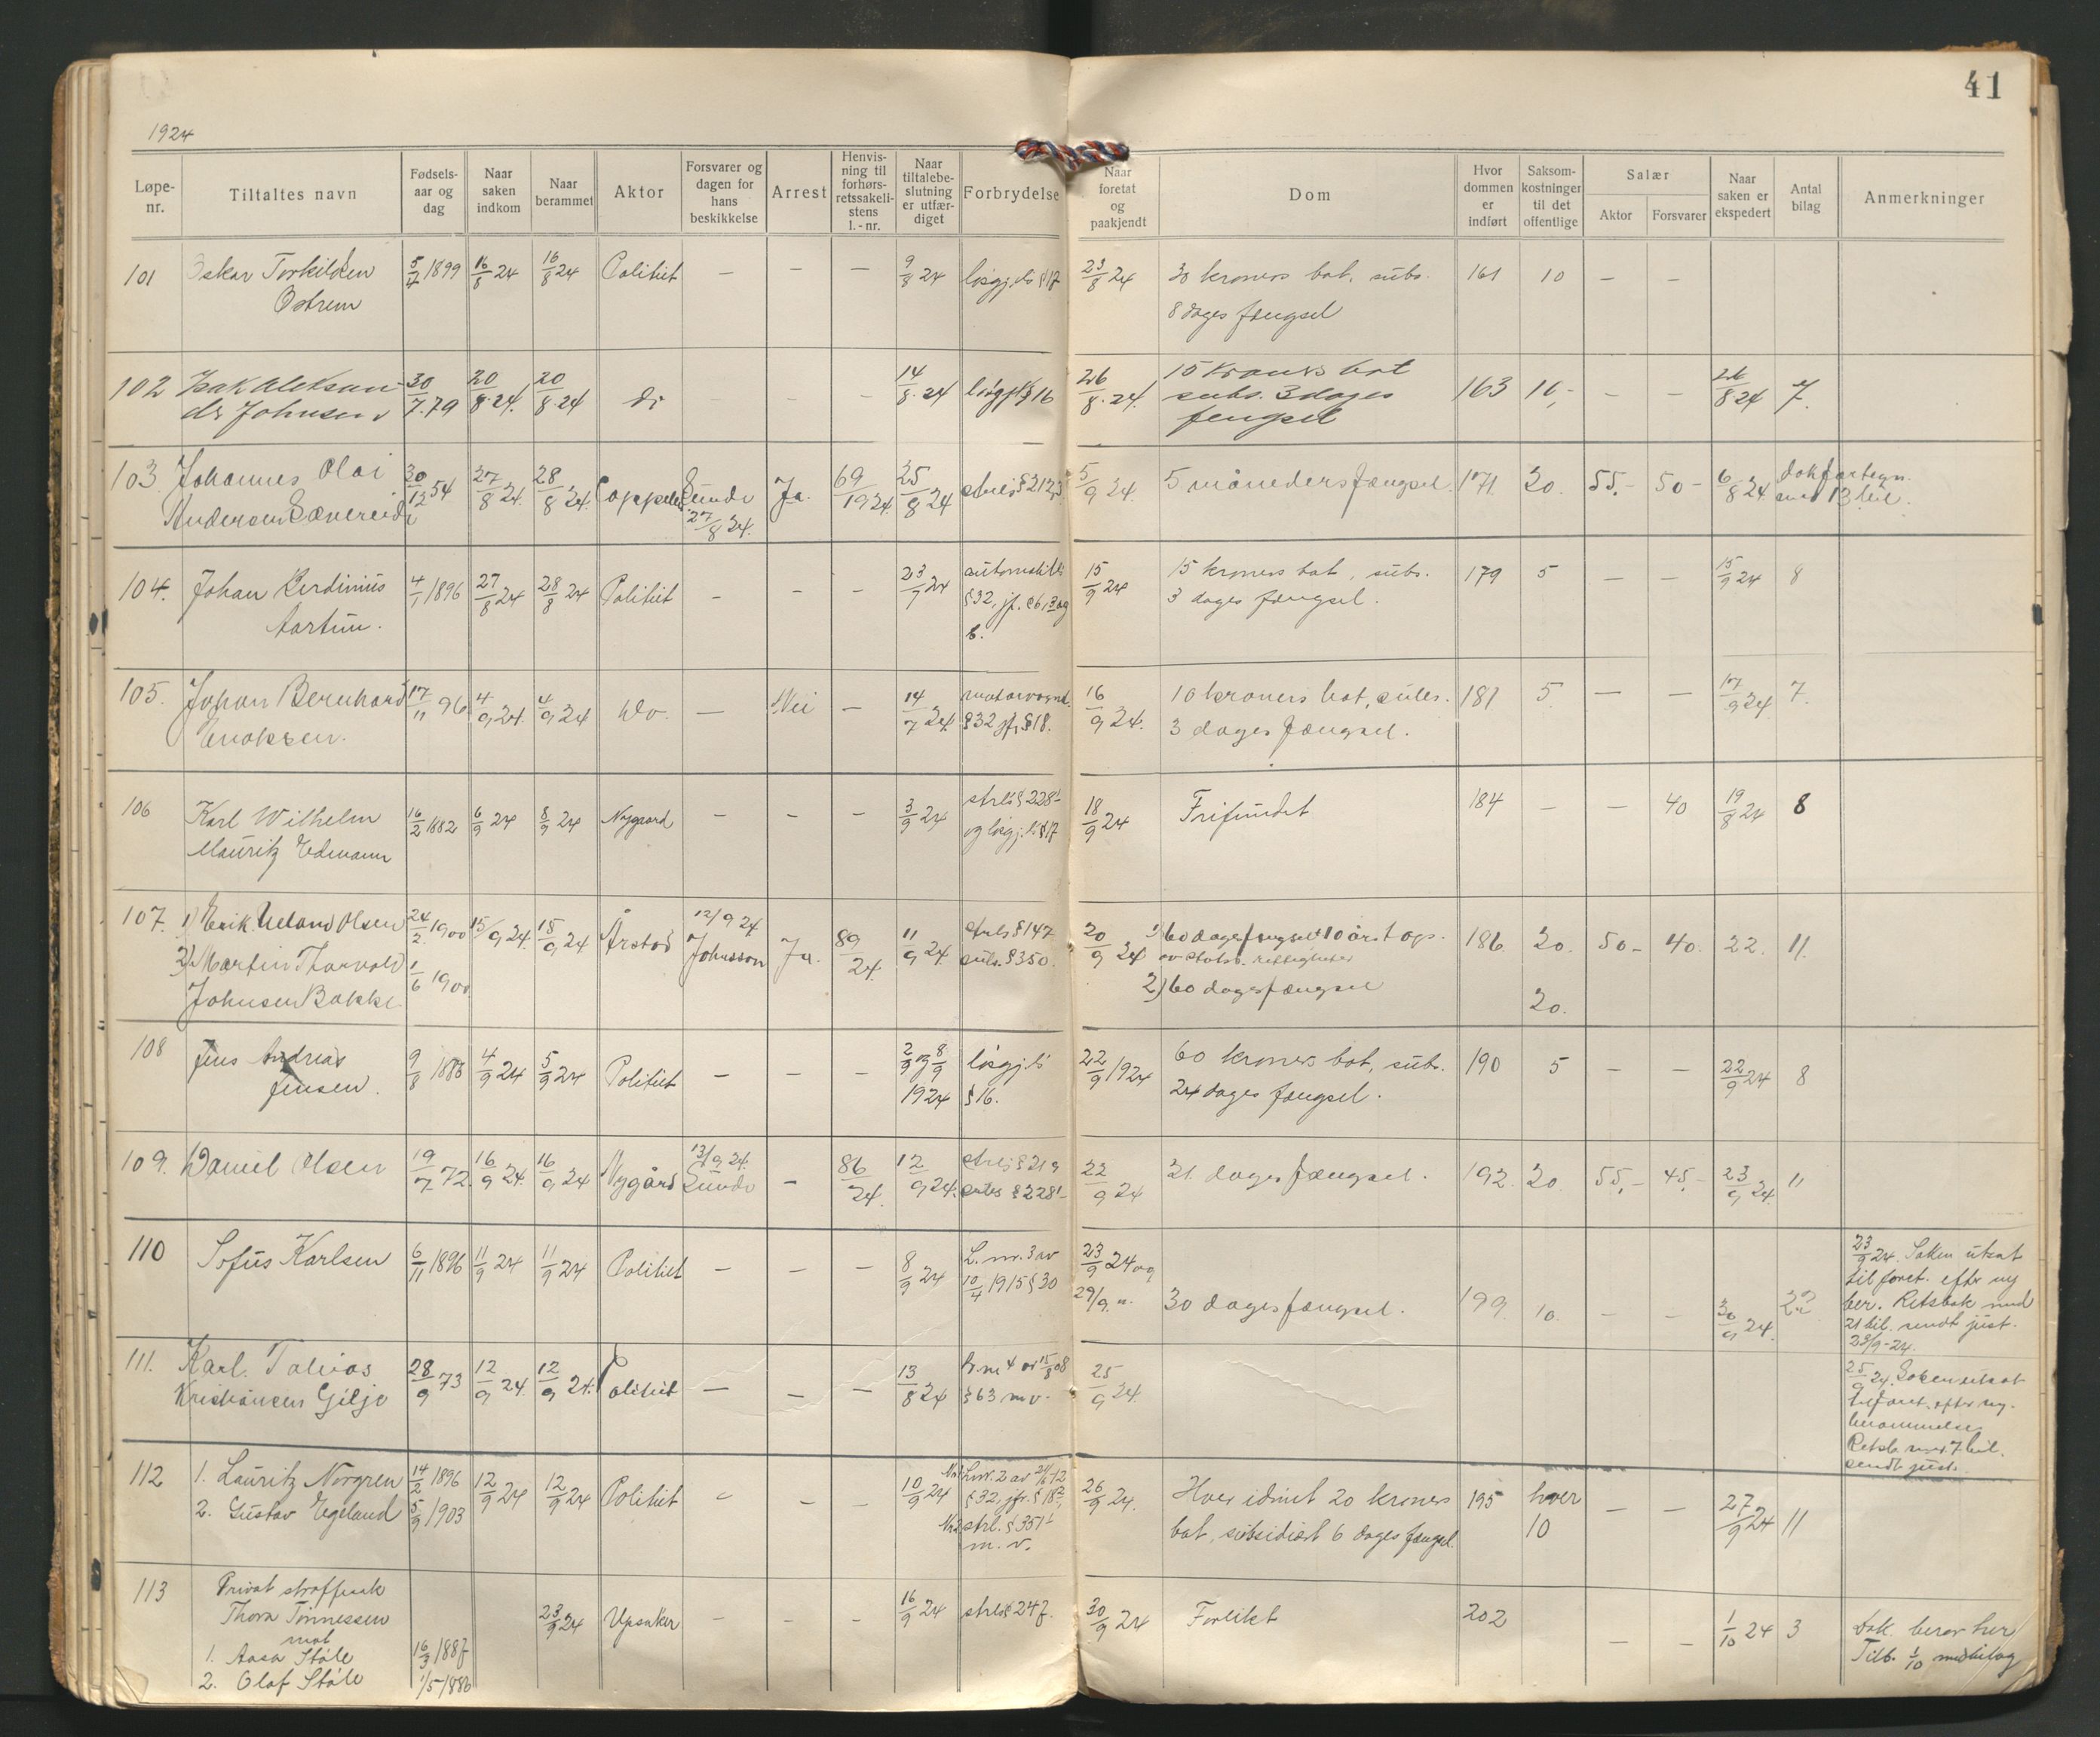 41
1924
Løpe-nr. Tiltaltes navn Fødsels-aar og dag Naar saken indkom Naar berammet Aktor Forsvarer og dagen for hans beskikkelse Arrest Henvis-ning til forhørs-retssakeli-stens l.-nr. Naar tiltalebe-slutning er utfær-diget Forbrydelse Naar foretat og paakjendt Dom Hvor dommen er indført Saksom-kostninger til det offentlige Salær Aktor Forsvarer Naar saken er ekspedert Antal bilag Anmerkninger
101 Oskar Torkildsen 5/4 1899 16/8 24 16/8 24 Politiet — — — 9/8 24 løsgj.ls §17 23/8 24 30 kroners bot, subs. 161 10 — —
Østrem 8 dages fængsel
102 Isak Aleksan- 30/7.79 20/8.24. 20/8.24 do — — — 14/8.24 løsgjl§16 26/8.24. 10 kroners bot 163 10,- — — 26/8 24 7.
der Johnsen subs. 3 dages
fengsel
103. Johannes Olai 30/12 54 27/8 24. 28/8 24. Cappelen Sunde Ja. 69/1924. 25/8 24 strls §212,3 5/9 24. 5 måneders fængsel. 171. 20. 55,- 50- 6/8 24 dokfortegn.
Andersen Sævereide 27/8 24. med 13 bil.
104. Johan Berdinius 4/1 1896 27/8 24 28/8 24 Politiet — — — 23/7 24 automobills 15/9 24 15 kroners bot, subs. 179 5 — — 15/9 24 8
Aartun. §32, jf. §6, 3 og 3 dages fængsel.
6.
105. Johan Bernhard 17/11 96 4/9 24. 4/9 24 Do. — Nei — 14/7 24. motorvognl. 16/9 24. 10 kroners bot, subs. 181 5. — — 17/9 24 7.
Enoksen. §32 jfr §18. 3 dages fængsel.
106 Karl Wilhelm 16/2 1882 6/9 24 8/9 24 Nygaard — — — 3/9 24 strls §228¹ 18/9 24 Frifundet 184 — — 40 19/8 24 8
Mauritz Edmann og løsgj.ls §17
107. 1) Erik Ueland Olsen 24/2. 1900 15/9 24. 15/9 24. Årstad 12/9 24 Johnsson Ja. 89/24. 11/9 24. strls §147 20/9 24 1) 60 dages fængsel + 10 års tap. 186. 20. 50- 40. 22. 11.
2) Martin Thorvald 1/6 1900 subs. §350. av statsb. rettigheter
Johnsen Bakke 2) 60 dages fængsel 20.
108 Jens Andreas 9/8 1883 4/9 24 5/9 24 Politiet — — — 2/9 og 8/9 løsgj.ls 22/9 1924 60 kroners bot, subs. 190 5 — — 22/9 24 8
Jensen. 1924 §16. 24 dages fængsel.
109. Daniel Olsen 19/7. 72. 16/9 24. 16/9 24 Nygård 13/9 24. Sunde — 86/24. 12/9 24. strls §219 22/9 24 21. dages fængsel. 192. 20. 55,- 45,- 23/9 24. 11
subs §228¹-
110 Sofus Karlsen 6/11 1896 11/9 24 11/9 24 Politiet — — — 8/9 24 L. nr. 3 av 23/9 24 og 23/9 24. Saken utsat
10/4 1915 §30 29/9. ". 30 dages fængsel. 199. 10. — — 30/9 24. 22 til foret. efter ny
ber. Retsbok med
21 bil. sendt just.
23/9-24.
111. Karl Tobias 28/9 73 12/9 24. 12/9 24. Politiet — — — 13/8 24 L. nr 4 av 15/8 08 25/9 24. 25/9 24. Saken utsat
Kristiansen Gilje §63 m v. til foret. efter ny.
berammelse
Retsb. med 7 bil.
sendt just.
112 1. Lauritz Norgren 14/2 1896 12/9 24 12/9 24 Politiet — — — 10/9 24 L nr. 2 av 21/6 12 26/9 24. Hver idømt 20 kroners 195 hver — — 27/9 24 11
2. Gustav Egeland 5/9 1903 §32, jfr. §18², bot, subsidiært 6 dages fængsel. 10
strl. §351¹
m. v.
113 Privat straffesak 23/9 24 Upsaker — — — 16/9 24 strls §247. 30/9 24 Forlikt 202 — — 1/10 24 3 Dok. beror her
Thora Tønnessen Tilb. 1/10 med bilag
mot
1. Aasa Støle 16/3 1887
2. Olaf Støle 1/5-1886